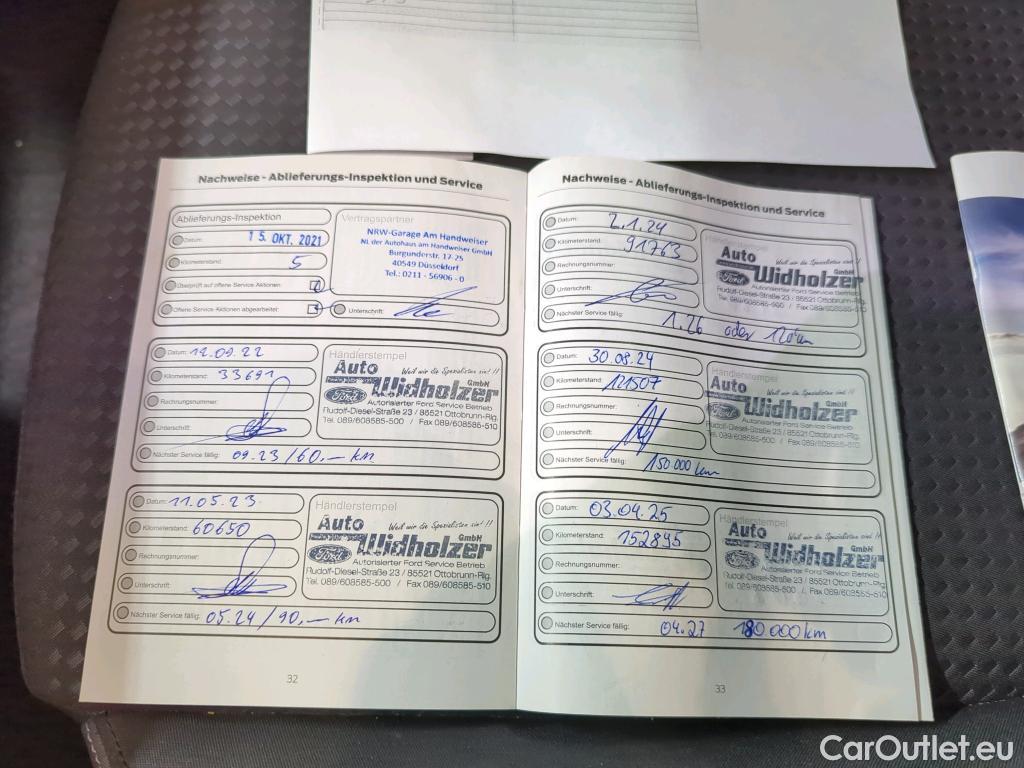 Nachweise - Ablieferungs-Inspektion und Service
Ablieferungs-Inspektion
Datum: 15. OKT. 2021
Kilometerstand: 5
Überprüft auf offene Service Aktionen:
Offene Service-Aktionen abgearbeitet:
Vertragspartner
NRW-Garage Am Handweiser
NL der Autohaus am Handweiser GmbH
Burgunderstr. 17-25
40549 Düsseldorf
Tel.: 0211 - 56906 - 0
Unterschrift:
Datum: 12.09.22
Kilometerstand: 33691
Rechnungsnummer:
Unterschrift:
Nächster Service fällig: 09.23/60,— km
Händlerstempel
Auto
Weil wir die Spezialisten sind !!
Ford Widholzer GmbH
Autorisierter Ford Service Betrieb
Rudolf-Diesel-Straße 23 / 85521 Ottobrunn-Rlg.
Tel. 089/608585-500 / Fax 089/608585-510
Datum: 11.05.23
Kilometerstand: 60650
Rechnungsnummer:
Unterschrift:
Nächster Service fällig: 05.24/90,— km
Händlerstempel
Auto
Weil wir die Spezialisten sind !!
Ford Widholzer GmbH
Autorisierter Ford Service Betrieb
Rudolf-Diesel-Straße 23 / 85521 Ottobrunn-Rlg.
Tel. 089/608585-500 / Fax 089/608585-510
32
Nachweise - Ablieferungs-Inspektion und Service
Datum: 2.1.24
Kilometerstand: 91763
Rechnungsnummer:
Unterschrift:
Nächster Service fällig: 1.26 oder
Händlerstempel
Auto
Weil wir die Spezialisten sind !!
Ford Widholzer GmbH
Autorisierter Ford Service Betrieb
Rudolf-Diesel-Straße 23 / 85521 Ottobrunn-Rlg.
Tel. 089/608585-500 / Fax 089/608585-510
Datum: 30.08.24
Kilometerstand: 121507
Rechnungsnummer:
Unterschrift:
Nächster Service fällig: 150 000 km
Händlerstempel
Auto
Weil wir die Spezialisten sind !!
Ford Widholzer GmbH
Autorisierter Ford Service Betrieb
Rudolf-Diesel-Straße 23 / 85521 Ottobrunn-Rlg.
Tel. 089/608585-500 / Fax 089/608585-510
Datum: 03.04.25
Kilometerstand: 152895
Rechnungsnummer:
Unterschrift:
Nächster Service fällig: 04.27 180 000 km
Händlerstempel
Auto
Weil wir die Spezialisten sind !!
Ford Widholzer GmbH
Autorisierter Ford Service Betrieb
Rudolf-Diesel-Straße 23 / 85521 Ottobrunn-Rlg.
Tel. 089/608585-500 / Fax 089/608585-510
33
CarOutlet.eu